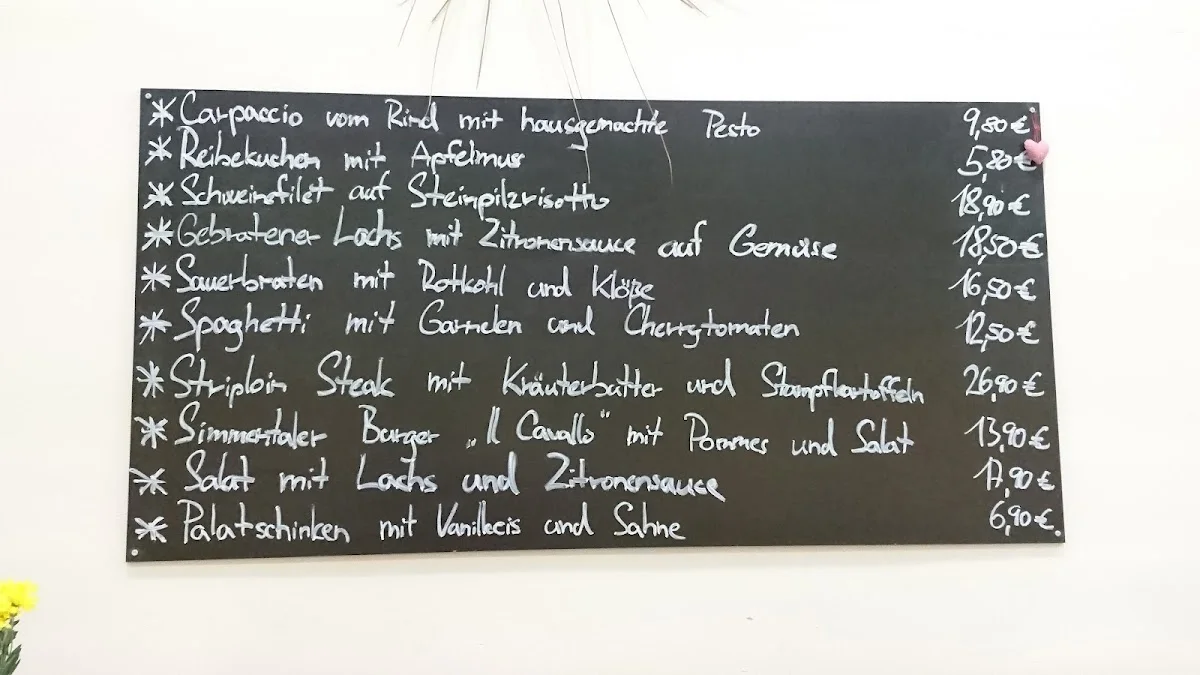 * Carpaccio vom Rind mit hausgemachte Pesto 9,80€
* Reibekuchen mit Apfelmus 5,80€
* Schweinefilet auf Steinpilzrisotto 18,90€
* Gebratener Lachs mit Zitronensauce auf Gemüse 18,50€
* Sauerbraten mit Rotkohl und Klöße 16,50€
* Spaghetti mit Garnelen und Cherrytomaten 12,50€
* Striploin Steak mit Kräuterbutter und Stampfkartoffeln 26,90€
* Simmentaler Burger „Il Cavallo“ mit Pommes und Salat 13,90€
* Salat mit Lachs und Zitronensauce 17,90€
* Palatschinken mit Vanilleeis und Sahne 6,90€